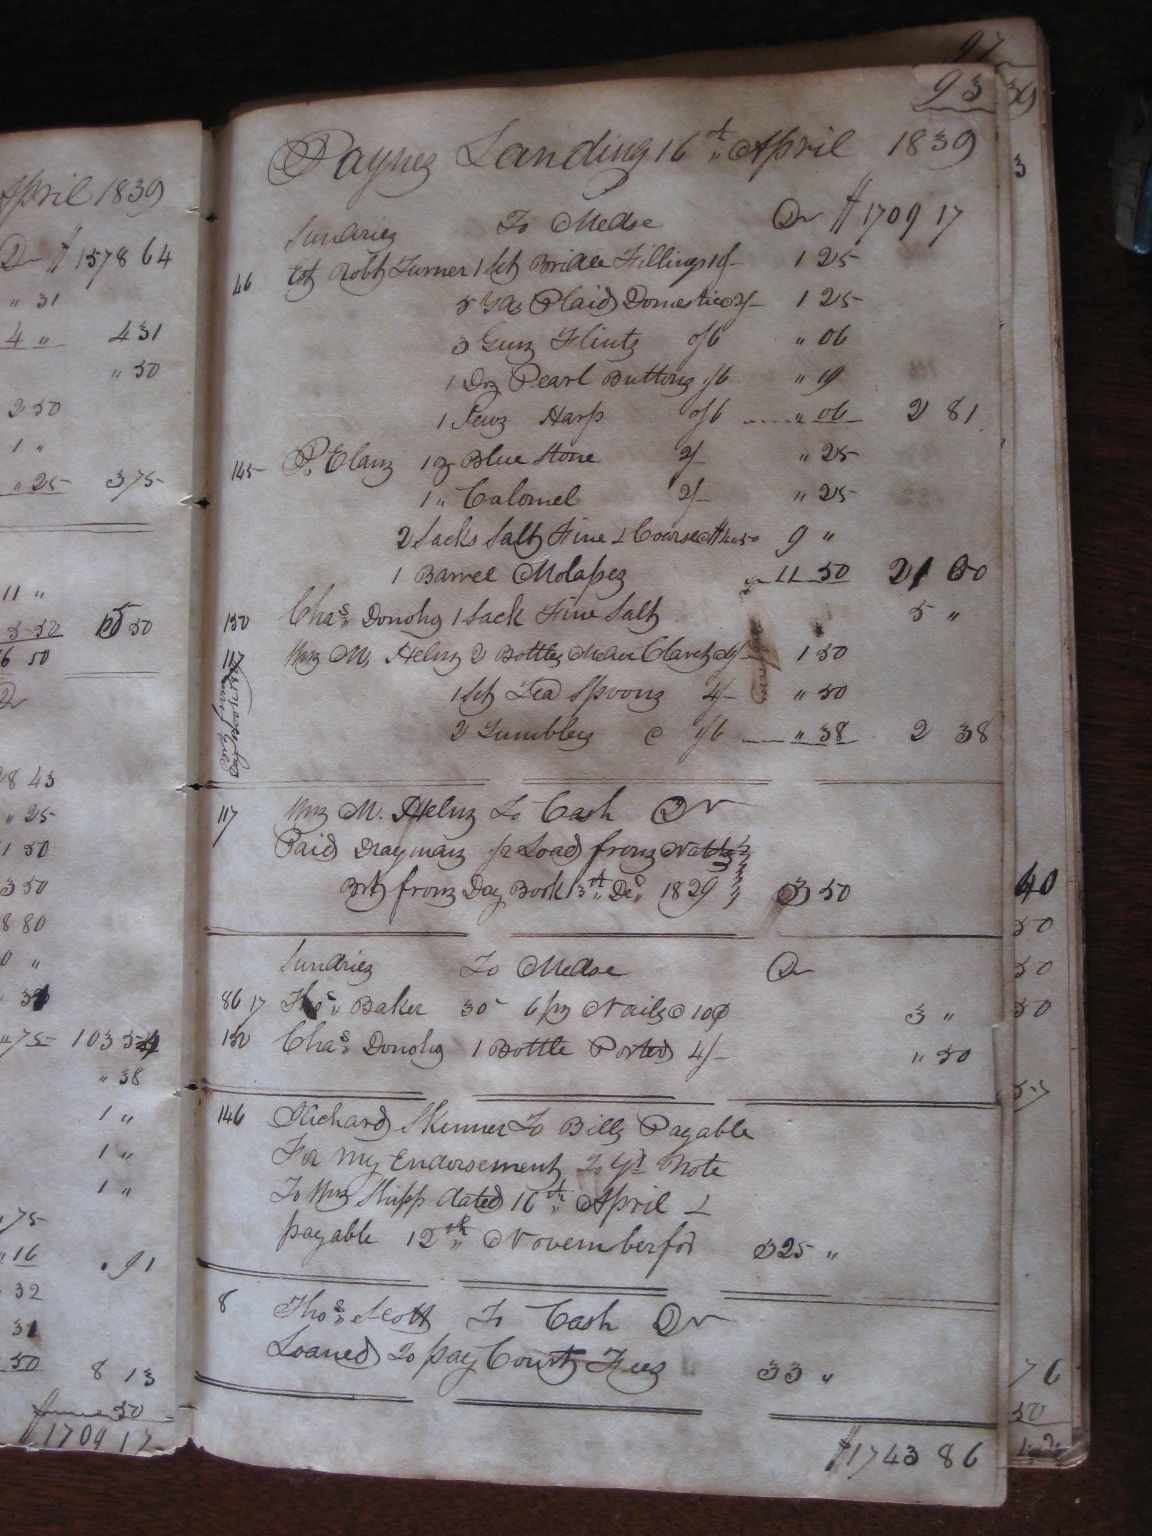 April 1839
Dr $1578 64
" 31
4 " 4 31
" 50
2 50
1 "
" 25 3 75
11 "
5 50 50
16 50
Dr
28 43
" 25
1 50
3 50
8 80
0 "
" 75 103
" 38
1 "
1 "
1 "
75
" 16 . 91
32
31
50 8 13
50
$1709 17
97
93
Paynes Landing 16th April 1839
Sundries To Mdse Dr $1709 17
46 Est Robt Turner 1 Set Bridle Fillings 10/- 1 25
5 Yds Plaid Domestic @ 2/- 1 25
3 Gun Flints 0/6 " 06
1 Doz Pearl Buttons 1/6 " 19
1 Jews Harp 0/6 " 06 2 81
145 P. Elam 1 oz Blue Stone 2/- " 25
1 " Calomel 2/- " 25
2 Sacks Salt Fine & Coarse @ $4.50 9 "
1 Barrel Molasses 11 50 21 00
150 Chas Donoho 1 Sack Fine Salt 5 "
117 Mrs M. Helm 2 Bottles Claret 1 50
Day Book
1 Set Tea Spoons 4/- " 50
2 Tumblers @ 1/6 " 38 2 38
117 Mrs M. Helm To Cash Dr
Paid Drayman pr Load from Natchez
Brt from Day Book Dec 1829 3 50
Sundries To Mdse Dr
86 17 Thos Baker 30 6 py Nails @ 10¢ 3 "
150 Chas Donoho 1 Bottle Porter 4/- " 50
146 Richard Skinner To Bills Payable
For my Endorsement To Yr Note
To Wm Shipp dated 16th April &
payable 12th November for 325 "
8 Thos Scott To Cash Dr
Loaned To pay Court Fees 33 "
$1743 86
39
3
40
50
50
50
76
50